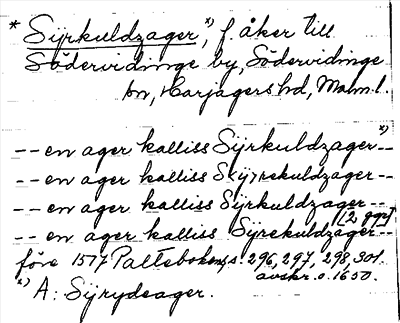 * Syrkuldzager,*) f. åker till
Södervidinge by, Södervidinge
sn, Harjagers hd, Malm.l.
-- en ager kalliss Sÿrkuldzager*) --
-- en ager kalliss S(ÿ)rekuldzager --
-- en ager kalliss Sÿrkuldzager --
[2 ggr]
-- en ager kalliss Syrekuldzager --
före 1517 Paltebokeng s. 296, 297, 298, 301.
avskr. o. 1650.
*) A: Sÿrydeager.